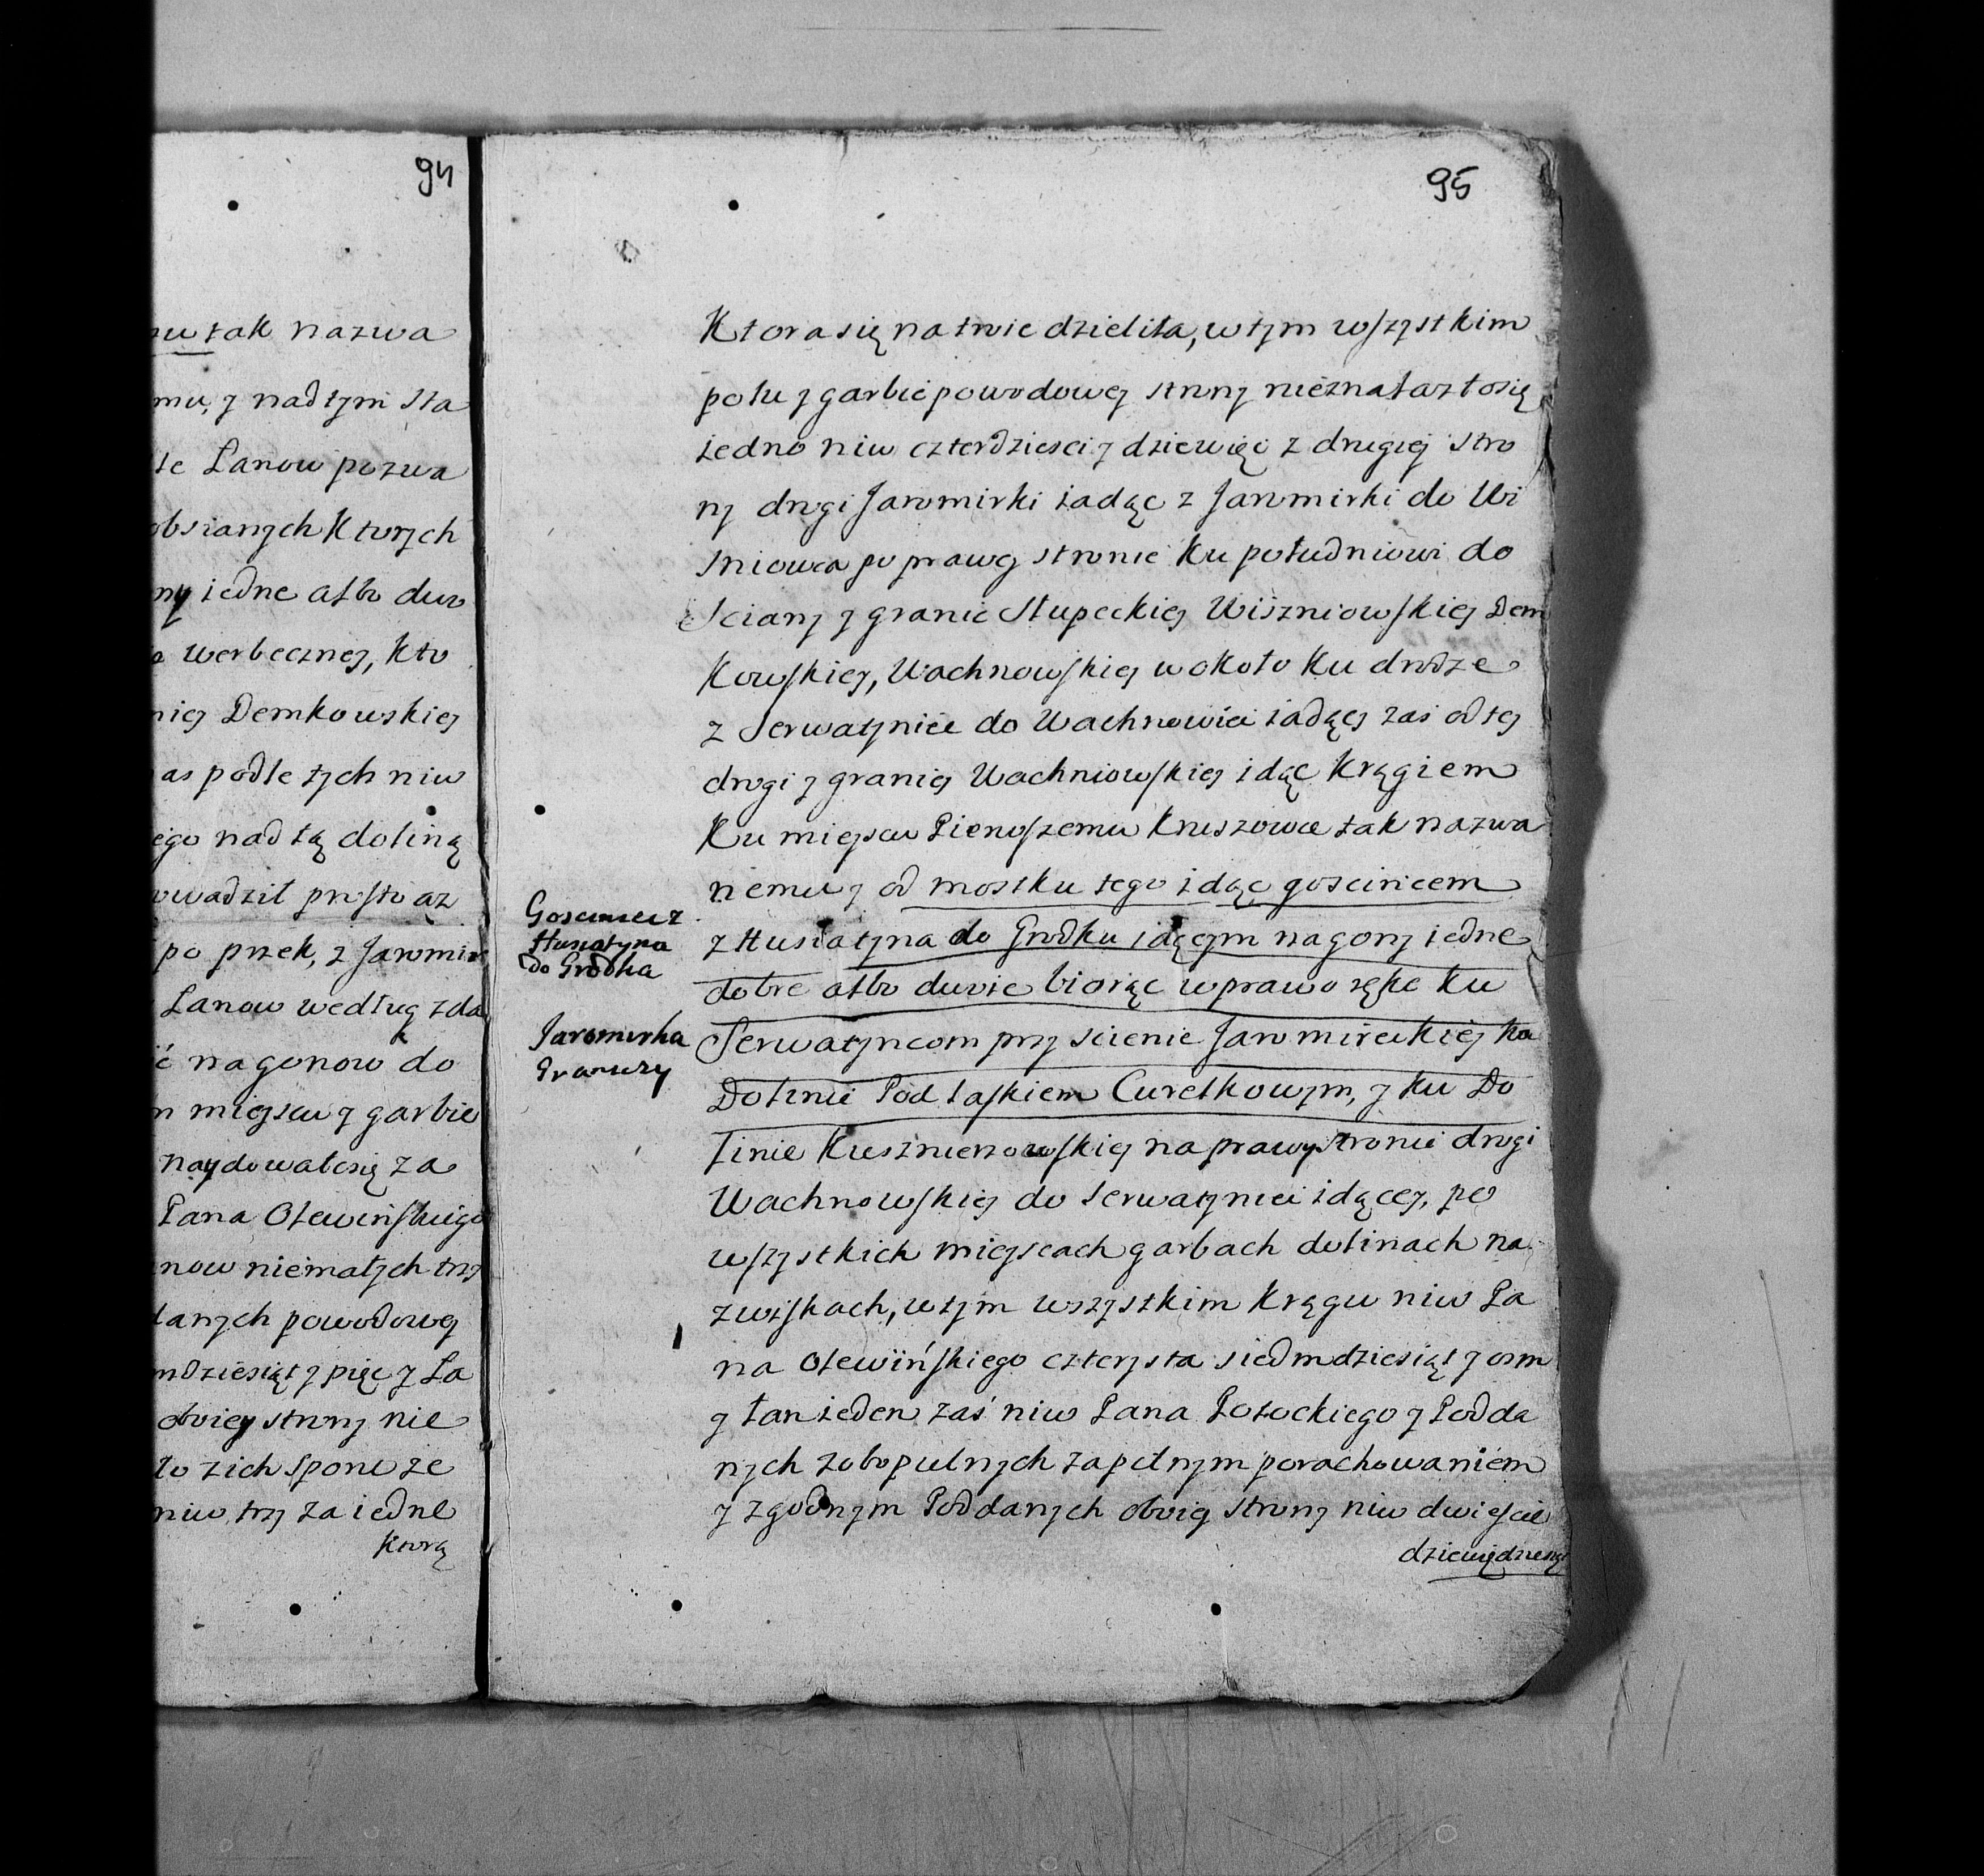 94
nu tak nazwa
mu, y nad tym sta
te Lanow pozwa
obsianych Ktorych
ny iedne albo dwo
a werbeczney, Kto
niey Demkowskiey
as podle tych niw
ego nad tą doliną
owadził prosto az
po przek, z Jaromir
Lanow według zda
ć nagonow do
m mieyscu y garbie
naydowałosię za
Pana Olewińskiego
now niemałych trzy
danych powodowey
mdziesiąt y pięc y La
oboiey strony nie
ło zich spore ze
niw trzy za iedne
Ktorą
95
Ktora się na troie dzieliła, w tym wszystkim
polu y garbie powodowey strony nieznalazłosię
iedno niw czterdziesci y dziewięc z drugiey stro
ny drogi Jaromirki iadąc z Jaromirki do Wi
sniowca po prawey stronie Ku południowi do
Sciany y granic Słupeckiey Wiszniowskiey Dem
Kowskiey, Wachnowskiey wokoło Ku drodze
z Serwatyniec do Wachnowiec iadącey zas od tey
drogi y granicy Wachniowskiey idąc Krągiem
Ku mieyscu Pierwszemu Kruszowce tak nazwa
nemu y od mostku tego idąc goscincem
z Husiatyna do Grodku idącym nagony iedne
dobre albo dwoie biorąc wprawo rękę Ku
Serwatyncom przy scienie Jaromireckiey ka
Dolinie Pod Laskiem Curelkowym, y ku Do
linie Kusznierzowskiey naprawey stronie drogi
Wachnowskiey do Serwatyniec idącey, po
wszystkich mieyscach garbach dolinach na
zwiskach, wtym wszystkim Kręgu niw Pa
na Olewińskiego czterysta siedmdziesiąt y osm
y łan ieden zaś niw Pana Potockiego y Podda
nych zobopulnych zapilnym porachowaniem
y zgodnym Poddanych oboiey strony niw dwiescie
Gosciniec z
Husiatyna
do Grodka
Jaromirka
Graniczy